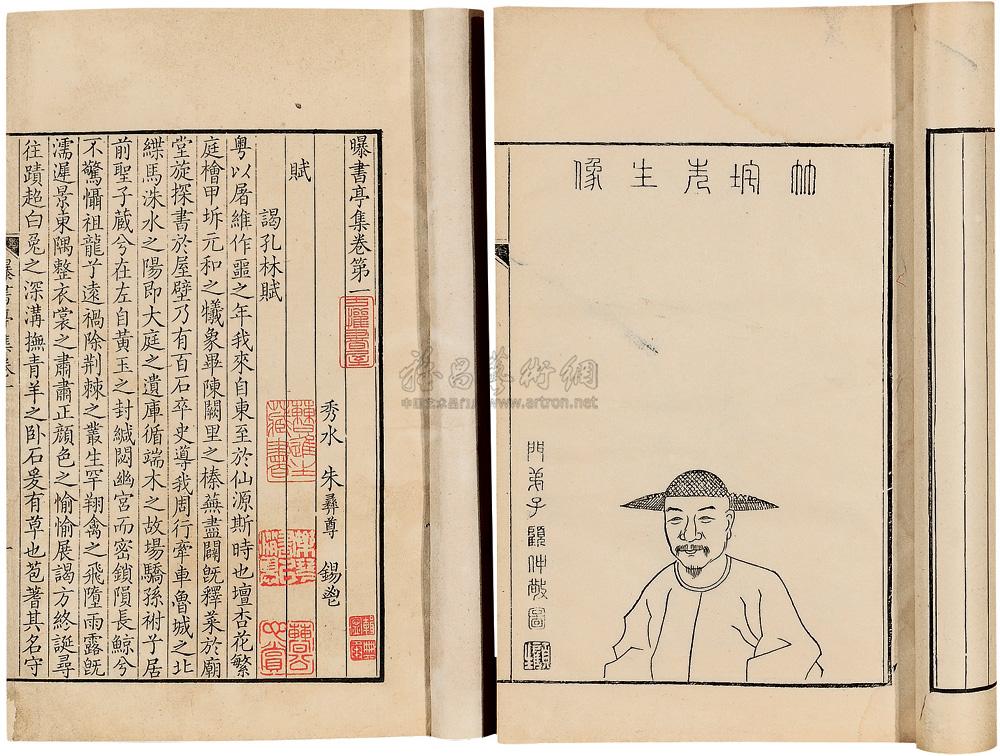 竹垞先生像
門弟子顧仲敬圖
曝書亭集卷第一
秀水　朱彝尊　錫鬯
賦
謁孔林賦
粵以屠維作噩之年我來自東至於仙源斯時也壇杏花繁
庭檜甲坼元和之犧象畢陳闕里之榛蕪盡闢旣釋菜於廟
堂旋探書於屋壁乃有百石卒史導我周行牽車魯城之北
緤馬洙水之陽即大庭之遺庫循端木之故場驕孫祔子居
前聖子蕆兮在左自黃玉之封緘閟幽宮而密鎖隕長鯨兮
不驚懾祖龍子遠禍除荆棘之叢生罕翔禽之飛墮雨露旣
濡遲景東隅整衣裳之肅肅正顏色之愉愉展謁方終誕尋
往蹟超白兔之深溝撫青羊之卧石爰有草也苞蓍其名守
曝書亭集卷一
一
雅昌藝術網
中国艺术品门户 www.artron.net